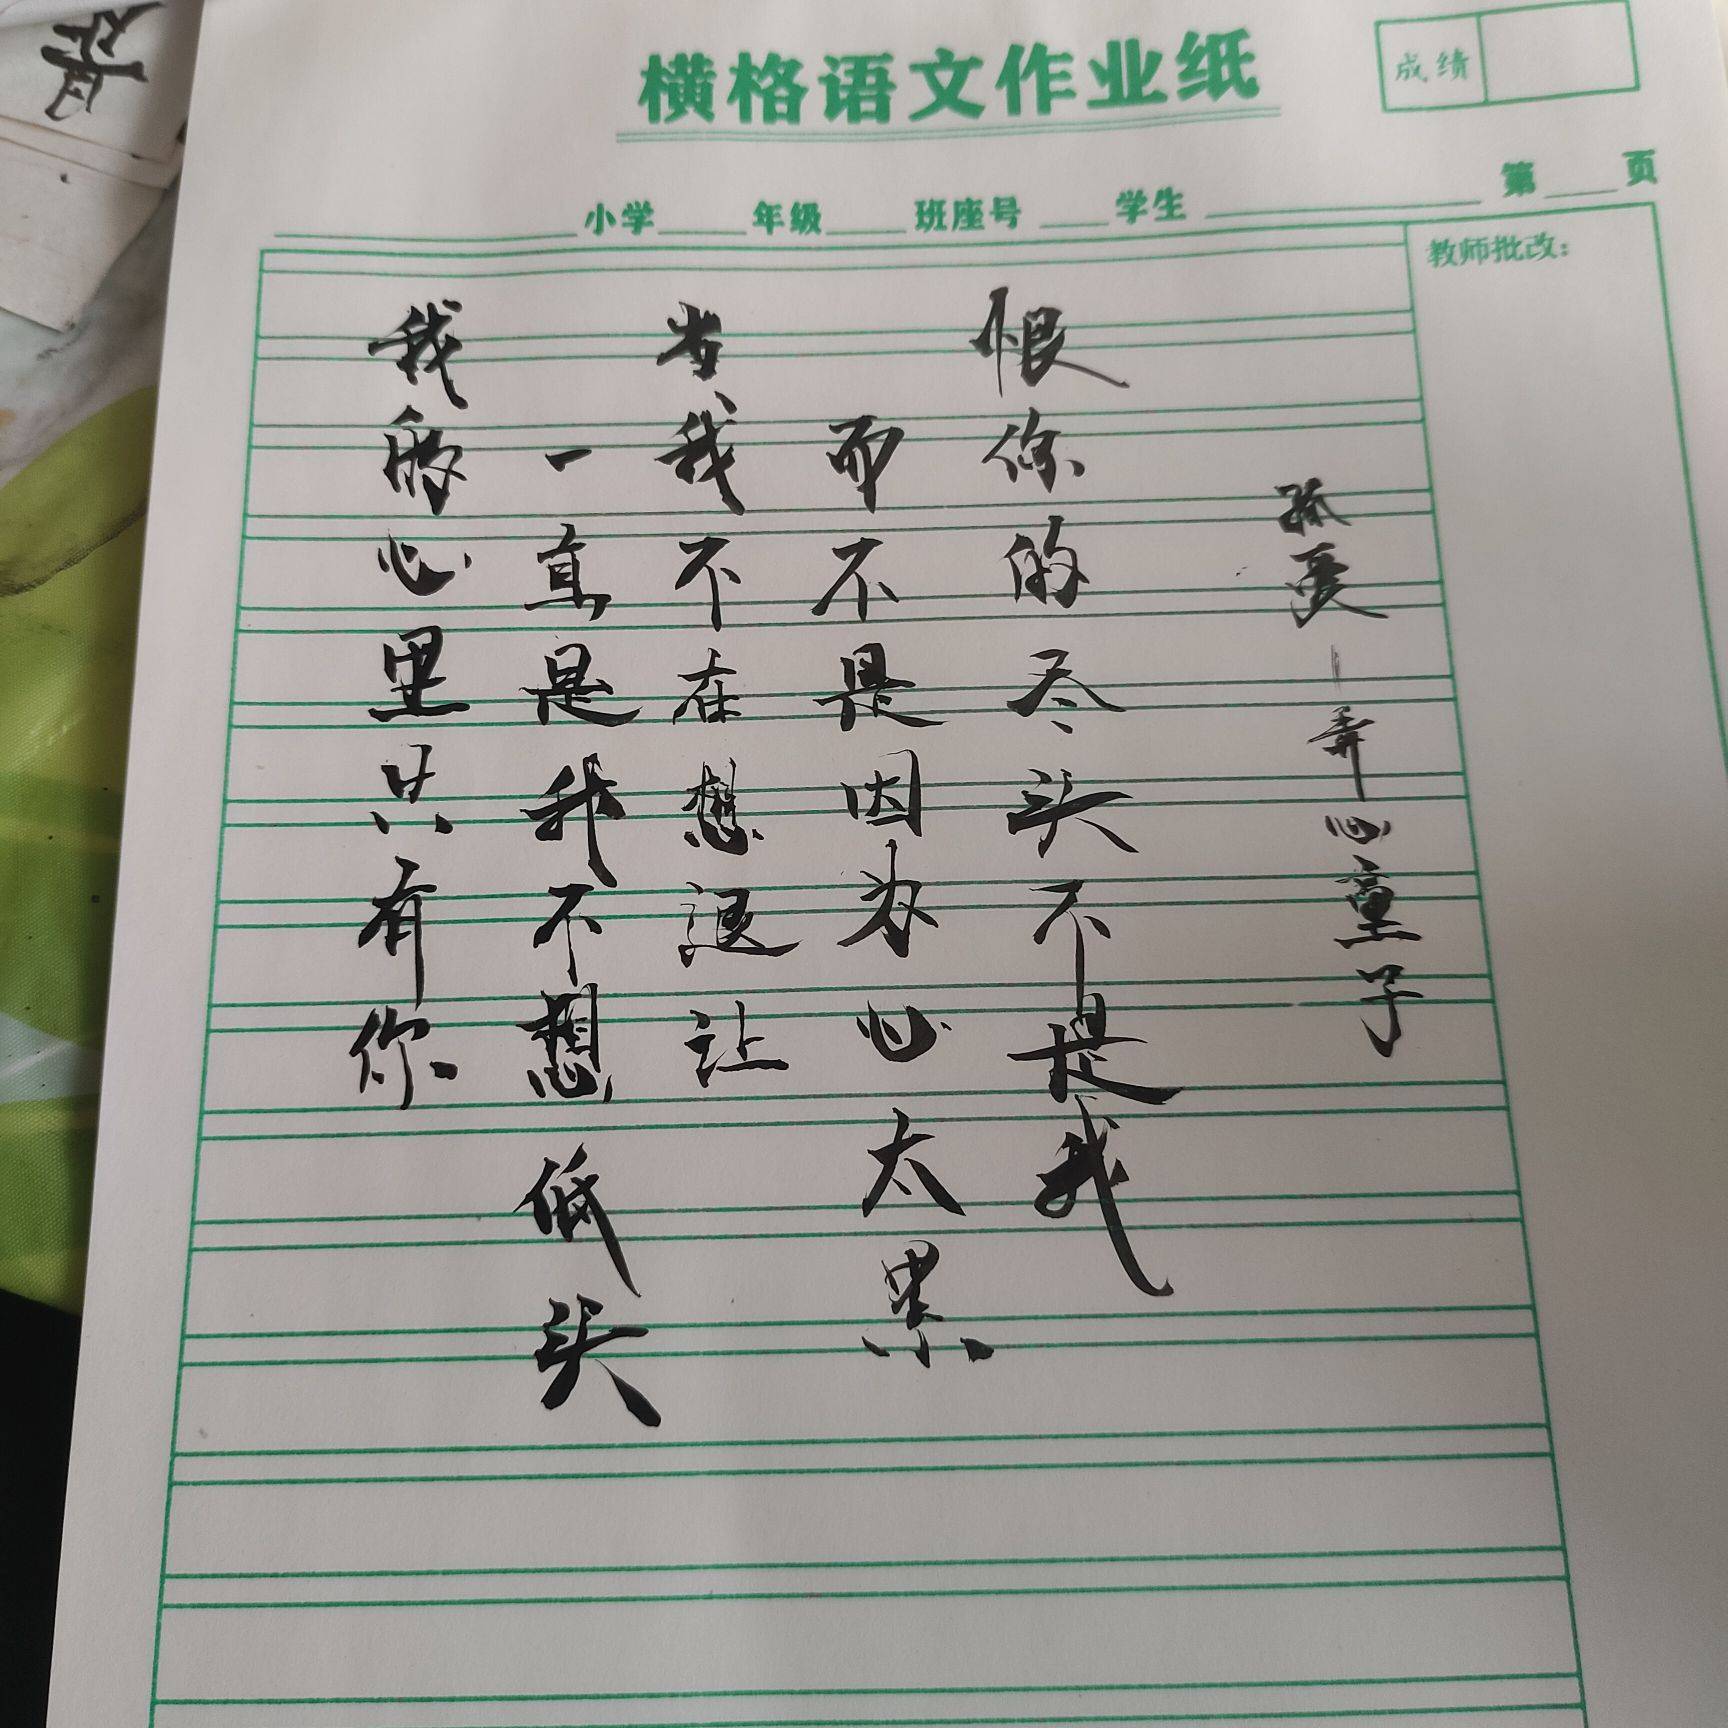 横格语文作业纸
成绩
小学 年级 班座号 学生 第 页
教师批改：
孤爱——弄心童子
恨你的尽头不是我
而不是因为心太累
当我不在想退让
一直是我不想低头
我的心里只有你